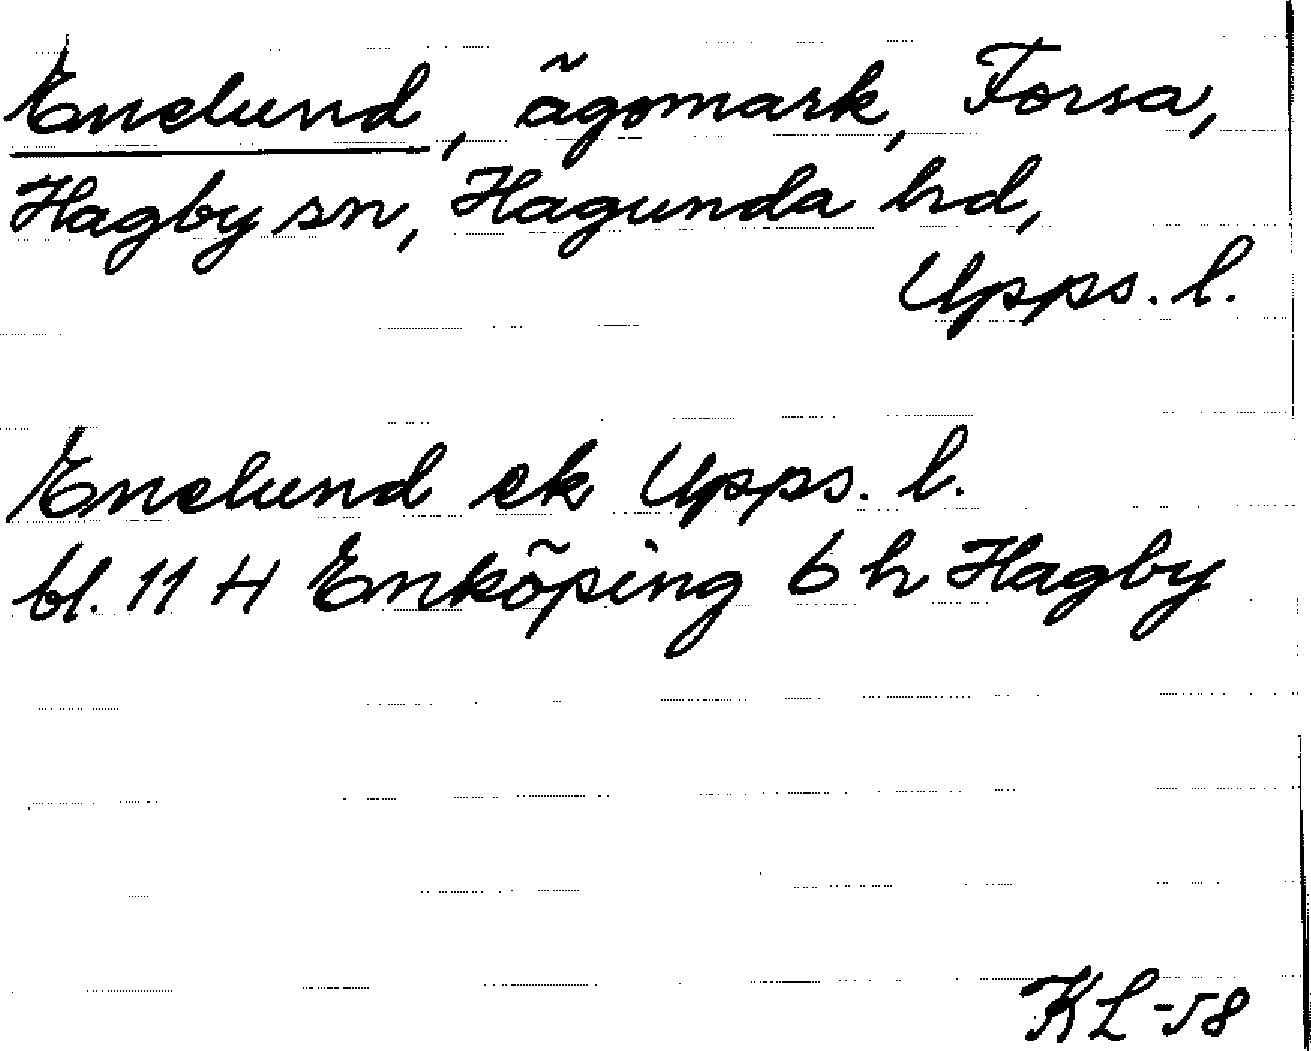 Enelund, ägomark, Forsa,
Hagby sn, Hagunda hd,
Upps. l.
Enelund ek Upps. l.
bl. 11 H Enköping 6 h Hagby
KL-58